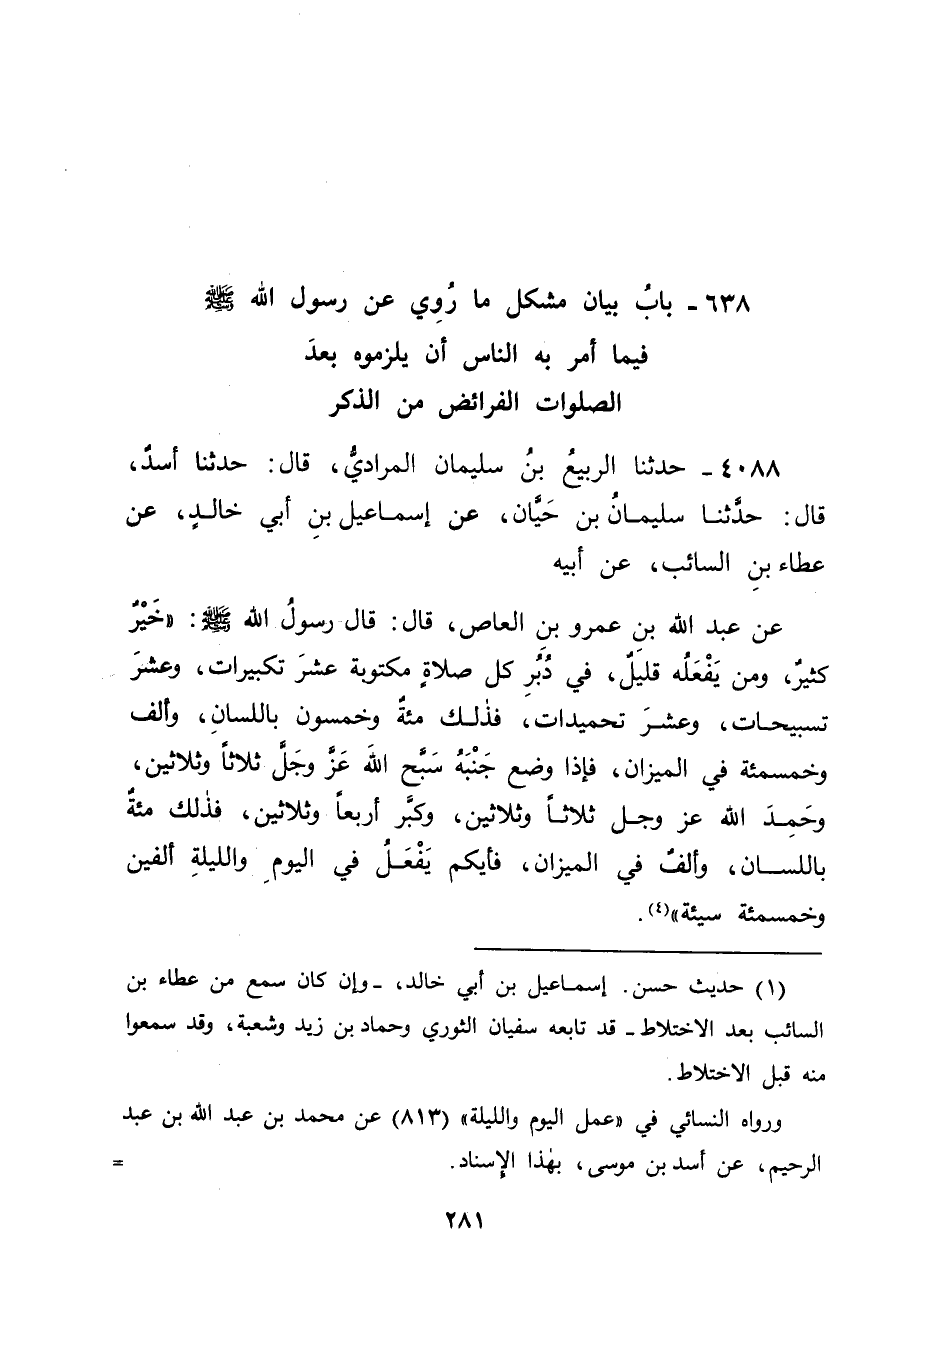 ٦٣٨ـ بابُ بيان مشكل ما رُوِي عن رسول الله ﷺ
فيما أمر به الناس أن يلزموه بعدَ
الصلوات الفرائض من الذكر
٤٠٨٨ ـ حدثنا الربيعُ بنُ سليمان المراديُّ، قال: حدثنا أسدٌ،
قال: حدَّثنا سليمانُ بن حَيَّان، عن إسماعيل بنِ أبي خالدٍ، عن
عطاء بنِ السائب، عن أبيه
عن عبد الله بنِ عمرو بنِ العاص، قال: قال رسولُ الله ﷺ: «خَيْرٌ
كثيرٌ، ومن يَفْعَلُه قليلٌ، في دُبُرِ كل صلاةٍ مكتوبة عشرَ تكبيرات، وعشرَ
تسبيحات، وعشرَ تحميدات، فذٰلك مئةٌ وخمسون باللسانِ، وألف
وخمسمئة في الميزان، فإذا وضع جَنْبَهُ سَبَّح اللهَ عَزَّ وجَلَّ ثلاثاً وثلاثين،
وحَمِدَ الله عز وجل ثلاثاً وثلاثين، وكبَّر أربعاً وثلاثين، فذٰلك مئةٌ
باللسان، وألفٌ في الميزان، فأيكم يَفْعَلُ في اليومِ والليلةِ ألفين
وخمسمئة سيئة»(٤).
(١) حديث حسن. إسماعيل بن أبي خالد، ـ وإن كان سمع من عطاء بن
السائب بعد الاختلاط ـ قد تابعه سفيان الثوري وحماد بن زيد وشعبة، وقد سمعوا
منه قبل الاختلاط.
ورواه النسائي في «عمل اليوم والليلة» (٨١٣) عن محمد بن عبد الله بن عبد
الرحيم، عن أسد بن موسى، بهٰذا الإسناد. =
٢٨١